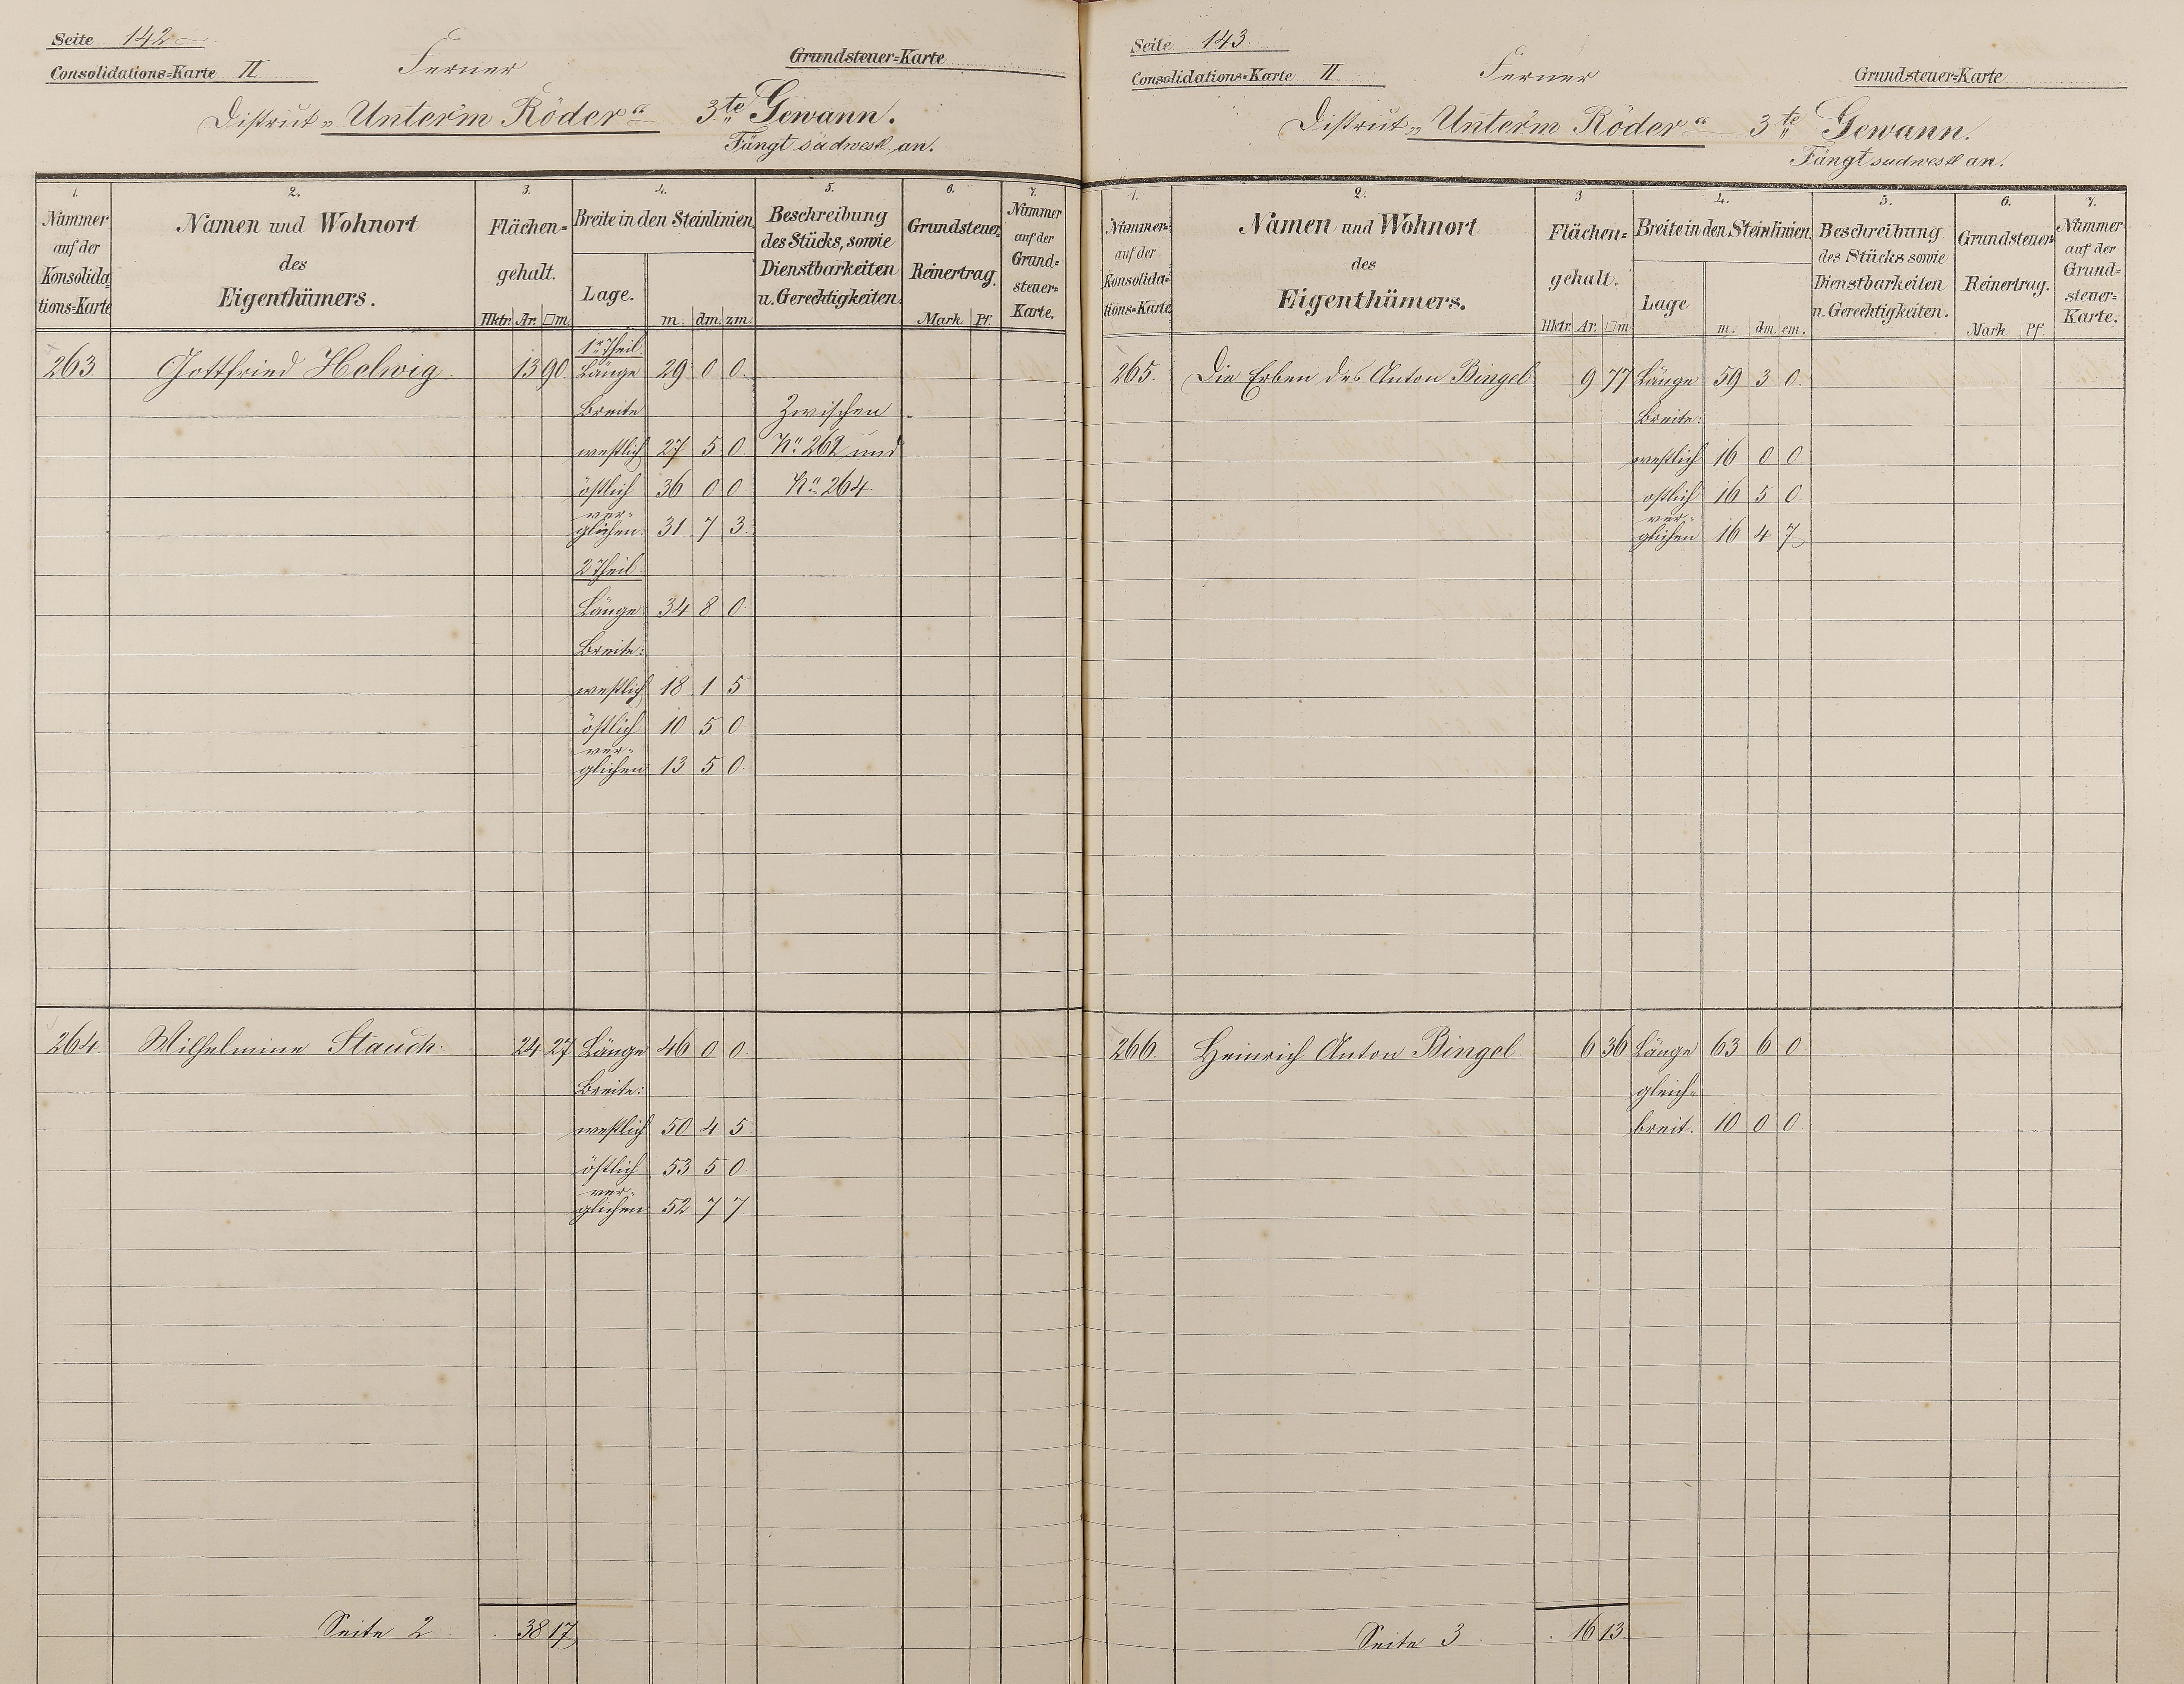 Seite 142
Consolidations=Karte II Ferner Grundsteuer=Karte
District „Unter'm Röder“ 3te Gewann.
Fängt südwestl. an.
1. 2. 3. 4. 5. 6. 7.
Nummer auf der Konsolida=tions=Karte
Namen und Wohnort des Eigenthümers.
Flächen=gehalt.
Hktr. Ar. □m.
Breite in den Steinlinien.
Lage. m. dm. zm.
Beschreibung des Stücks, sowie Dienstbarkeiten u. Gerechtigkeiten.
Grundsteuer Reinertrag.
Mark Pf.
Nummer auf der Grund=steuer=Karte.
1r Theil
263. Gottfried Helwig 13 90 Länge 29 0 0.
Breite Zwischen
westlich 27 5 0. No. 262 und
östlich 36 0 0 No. 264
ver=
glichen 31 7 3.
2 Theil
Länge 34 8 0.
Breite:
westlich 18 1 5
östlich 10 5 0
ver=
glichen 13 5 0.
264. Wilhelmine Stauch. 24 27 Länge 46 0 0.
Breite:
westlich 50 4 5
östlich 53 5 0.
ver=
glichen 52 7 7.
Seite 2 . 38 17
Seite 143.
Consolidations=Karte II Ferner Grundsteuer=Karte
District „Unter'm Röder“ 3te Gewann.
Fängt südwestl an.
1. 2. 3 4. 5. 6. 7.
Nummer auf der Konsolida=tions=Karte
Namen und Wohnort des Eigenthümers.
Flächen=gehalt.
Hktr. Ar. □m
Breite in den Steinlinien.
Lage m. dm. cm.
Beschreibung des Stücks sowie Dienstbarkeiten u. Gerechtigkeiten.
Grundsteuer Reinertrag.
Mark Pf.
Nummer auf der Grund=steuer=Karte.
265. Die Erben des Anton Bingel 9 77 Länge 59 3 0.
Breite:
westlich 16 0 0
östlich 16 5 0
ver=
glichen 16 4 7
266. Heinrich Anton Bingel. 6 36 Länge 63 6 0
gleich=
breit. 10 0 0
Seite 3. . 16 13